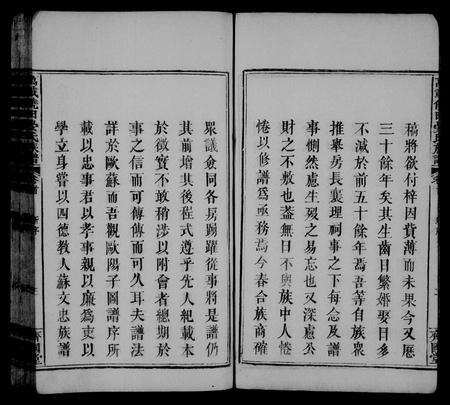 稿將欲付梓因費薄而未果今又歷
三十餘年矣其生齒日繁婚娶日多
不減於前五十餘年焉吾等自族衆
推舉房長襄理祠事之下每念及譜
事惻然慮生殁之易忘也又深慮公
財之不敷也盖無日不與族中人惓
惓以修譜爲亟務焉今春合族商確
眾議僉同各房踴躍從事將是譜仍
其前增其後程式尊乎先人紀載本
於徵實不敢稍涉以附會者總期於
事之信而可傳傳而可久耳夫譜法
詳於歐蘇而吾觀歐陽子圖譜序所
載以忠事君以孝事親以廉爲吏以
學立身嘗以四德教人蘇文忠族譜